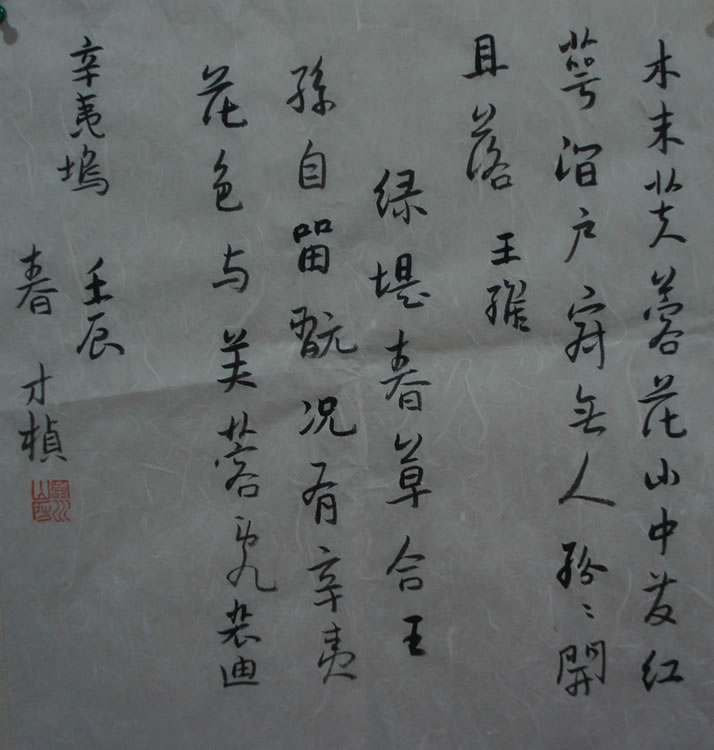 木末芙蓉花山中发红
萼涧户寂无人纷〻開
且落 王維
绿堤春草合王
孫自留翫况有辛夷
花色与芙蓉乱裴迪
辛夷塢 壬辰
春 才楨